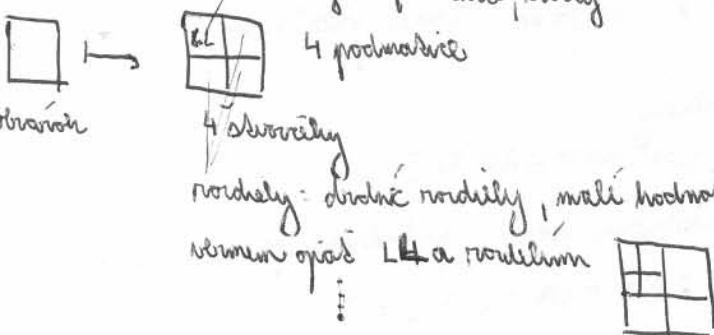 LL
4 podmatice
obrázok
4 štvorčeky
rozdiely: drobné rozdiely, malé hodno
vezmem opäť LL a rozdelím